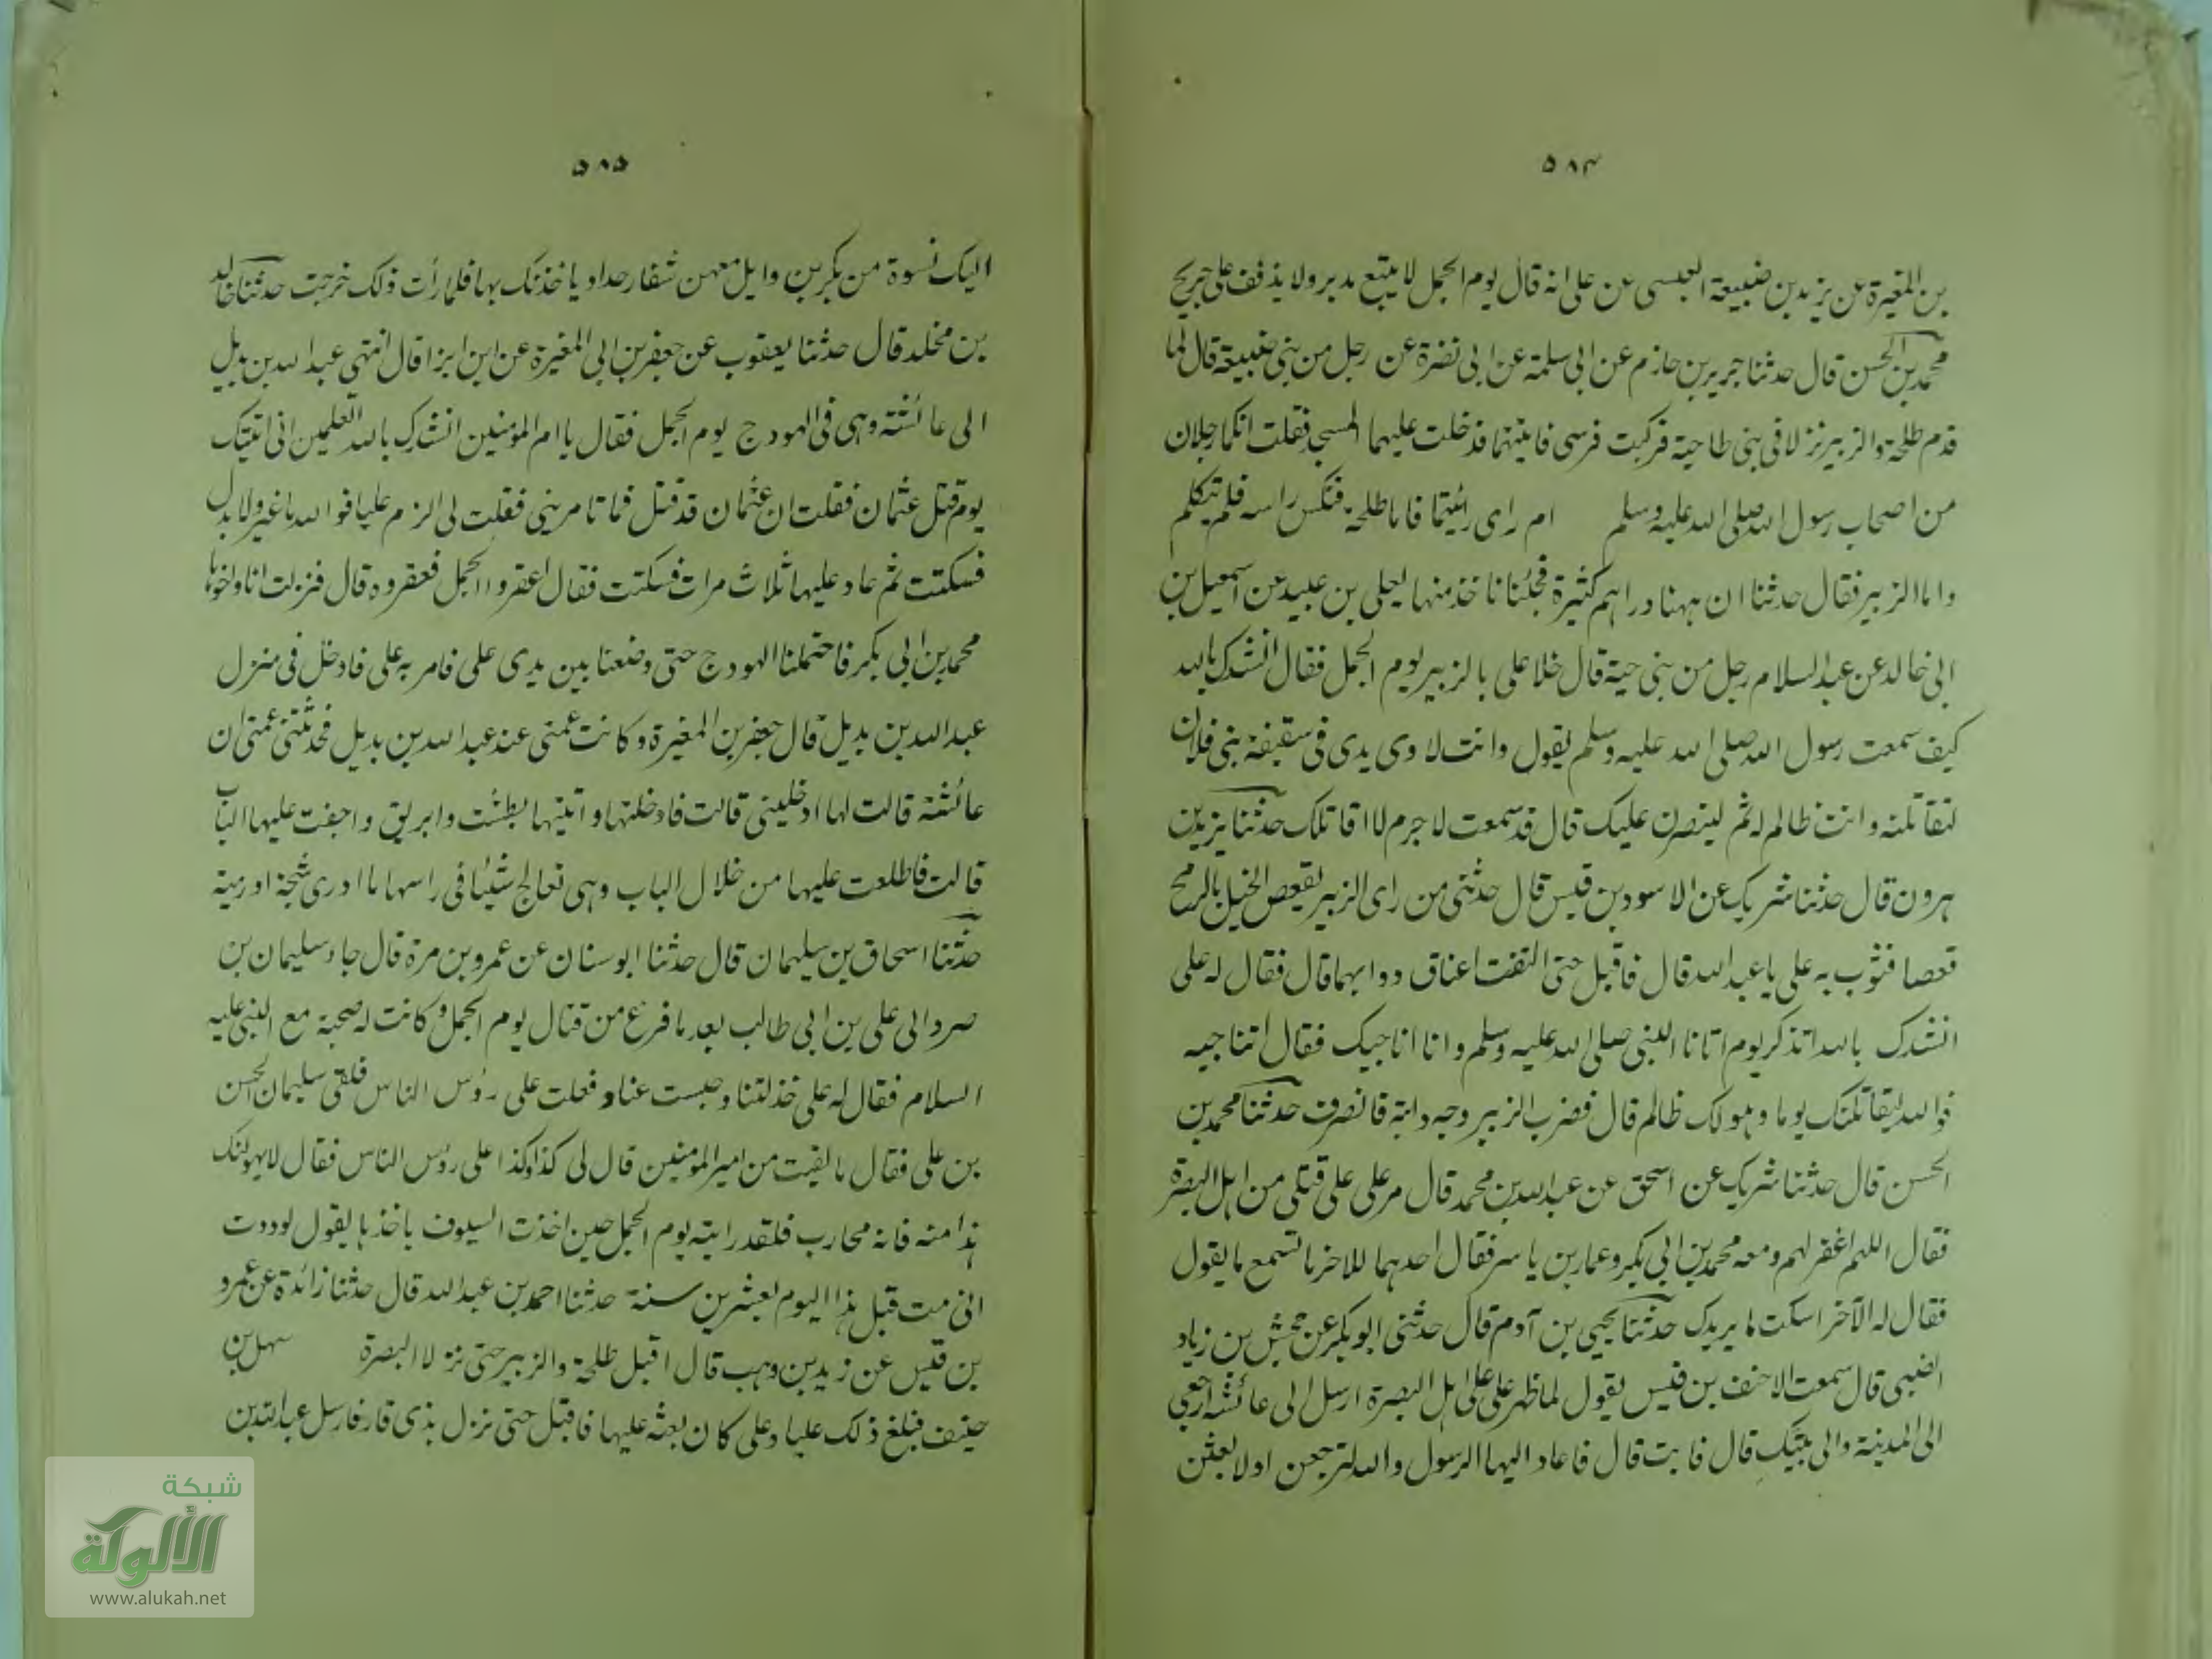 ٥٨٤
بن المغيرة عن يزيد بن ضبيعة العبسى عن على انه قال يوم الجمل لا يتبع مدبر ولا يذفف على جريح
محمد بن الحسن قال حدثنا جرير بن حازم عن ابى سلمة عن ابى نضرة عن رجل من بنى ضبيعة قال لما
قدم طلحة والزبير نزلا فى بنى طاحية فركبت فرسى فاتيتهما فدخلت عليهما المسجد فقلت انكما رجلان
من اصحاب رسول الله صلى الله عليه وسلم ام راى رائيتما فاما طلحة فنكس راسه فلم يتكلم
واما الزبير فقال حدثنا ان ههنا دراهم كثيرة فجئنا ناخذ منها يعلى بن عبيد عن اسمعيل بن
ابى خالد عن عبد السلام رجل من بنى حية قال خلا على بالزبير يوم الجمل فقال انشدك بالله
كيف سمعت رسول الله صلى الله عليه وسلم يقول وانت لاوى يدى فى سقيفة بنى فلان
لتقاتلنه وانت ظالم له ثم لينصرن عليك قال قد سمعت لا جرم لا اقاتلك حدثنا يزيد بن
هرون قال حدثنا شريك عن الاسود بن قيس قال حدثنى من راى الزبير يقعص الخيل بالرمح
قعصا فثوب به على يا عبد الله قال فاقبل حتى التفت اعناق دوابهما قال فقال له على
انشدك بالله اتذكر يوم اتانا النبى صلى الله عليه وسلم وانا اناجيك فقال اتناجيه
فوالله ليقاتلنك يوما وهو لك ظالم قال فضرب الزبير وجه دابته فانصرف حدثنا محمد بن
الحسن قال حدثنا شريك عن اسحق عن عبد الله بن محمد قال مر على على قتلى من اهل البصرة
فقال اللهم اغفر لهم ومعه محمد بن ابى بكر وعمار بن ياسر فقال احدهما للاخر ما تسمع ما يقول
فقال له الآخر اسكت لا يريدك حدثنا يحيى بن آدم قال حدثنى ابو بكر عن جحش بن زياد
الضبى قال سمعت الاحنف بن قيس يقول لما ظهر على على اهل البصرة ارسل الى عائشة ارجعى
الى المدينة والى بيتك قال فابت قال فاعاد اليها الرسول والله لترجعن او لابعثن
٥٨٥
اليك نسوة من بكر بن وايل معهن شفار حداد ياخذنك بها فلما رأت ذلك خرجت حدثنا خالد
بن مخلد قال حدثنا يعقوب عن جعفر بن ابى المغيرة عن ابن ابزا قال انتهى عبد الله بن بديل
الى عائشة وهى فى الهودج يوم الجمل فقال يا ام المومنين انشدك بالله اتعلمين انى اتيتك
يوم قتل عثمان فقلت ان عثمان قد قتل فما تامرينى فقلت لى الزم عليا فوالله ما غير ولا بدل
فسكتت ثم عاد عليها ثلاث مرات فسكتت فقال اعقروا الجمل فعقروه قال فنزلت انا واخوها
محمد بن ابى بكر فاحتملنا الهودج حتى وضعنا بين يدى على فامر به على فادخل فى منزل
عبد الله بن بديل قال جعفر بن المغيرة وكانت عمتى عند عبد الله بن بديل فحدثتنى عمتى ان
عائشة قالت لها ادخلينى قالت فادخلتها واتيتها بطشت وابريق واجفت عليها الباب
قالت فاطلعت عليها من خلال الباب وهى تعالج شيئا فى راسها ما ادرى شجة او رمية
حدثنا اسحاق بن سليمان قال حدثنا ابو سنان عن عمرو بن مرة قال جاء سليمان بن
صرد الى على بن ابى طالب بعد ما فرع من قتال يوم الجمل وكانت له صحبة مع النبى عليه
السلام فقال له على خذلتنا وجبست عناو فعلت على رؤس الناس فلقى سليمان الحسن
بن على فقال ما لقيت من امير المومنين قال لى كذا وكذا على رؤس الناس فقال لا يهولنك
هذا منه فانه محارب فلقد رايته يوم الجمل حين اخذت السيوف ياخذها يقول لوددت
انى مت قبل هذا اليوم بعشرين سنة حدثنا احمد بن عبد الله قال حدثنا زائدة عن عمرو
بن قيس عن زيد بن وهب قال اقبل طلحة والزبير حتى نزلا البصرة سهل بن
حنيف فبلغ ذلك عليا وعلى كان بعثه عليها فاقبل حتى نزل بذى قار فارسل عبد الله بن
شبكة
الألوكة
www.alukah.net